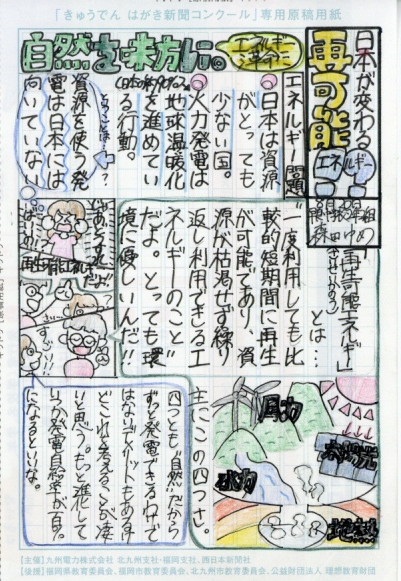 「きゅうでん はがき新聞コンクール」専用原稿用紙
日本が変わる
再可能
エネルギー
自然を味方に。
エネルギー
革命に
エネルギー問題
日本は資源
がとっても
少ない国。
火力発電は
地球温暖化
を進めてい
る行動。
ということは…
資源を使う発
電は日本には
向いていない
再生可能エネルギーだよ!
すごい!!
「再生可能エネルギー」
とは…
"一度利用しても比
較的短期間に再生
が可能であり、資
源が枯渇せず繰り
返し利用できるエ
ネルギーのこと"
だよ。とっても環
境に優しいんだ!!
主にこの四つさ。
風力
太陽光
水力
地熱
四つとも"自然"だから
ずっと発電できるわけで
はないデメリットもあるけ
どこれを考えることが凄
いと思う。もっと進化して
いつか発電自給率が百%
になるといいな。
【主催】九州電力株式会社 北九州支社・福岡支社、西日本新聞社
【後援】福岡県教育委員会、福岡市教育委員会、北九州市教育委員会、公益財団法人 理想教育財団